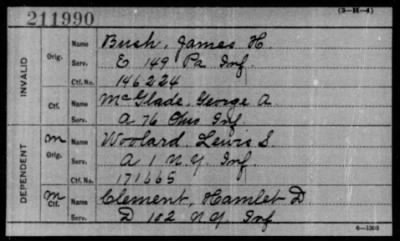 (3-H-4)
211990
INVALID
Orig. Name Bush, James H.
Serv. E 149 Pa Inf.
Ctf. No. 146224
Ctf. Name McGlade, George A
Serv. A 76 Ohio Inf.
DEPENDENT
m Orig. Name Woolard, Lewis S.
Serv. A 1 N.Y. Inf.
Ctf. No. 171665
m Ctf. Name Clement, Hamlet D
Serv. D 102 N.Y. Inf